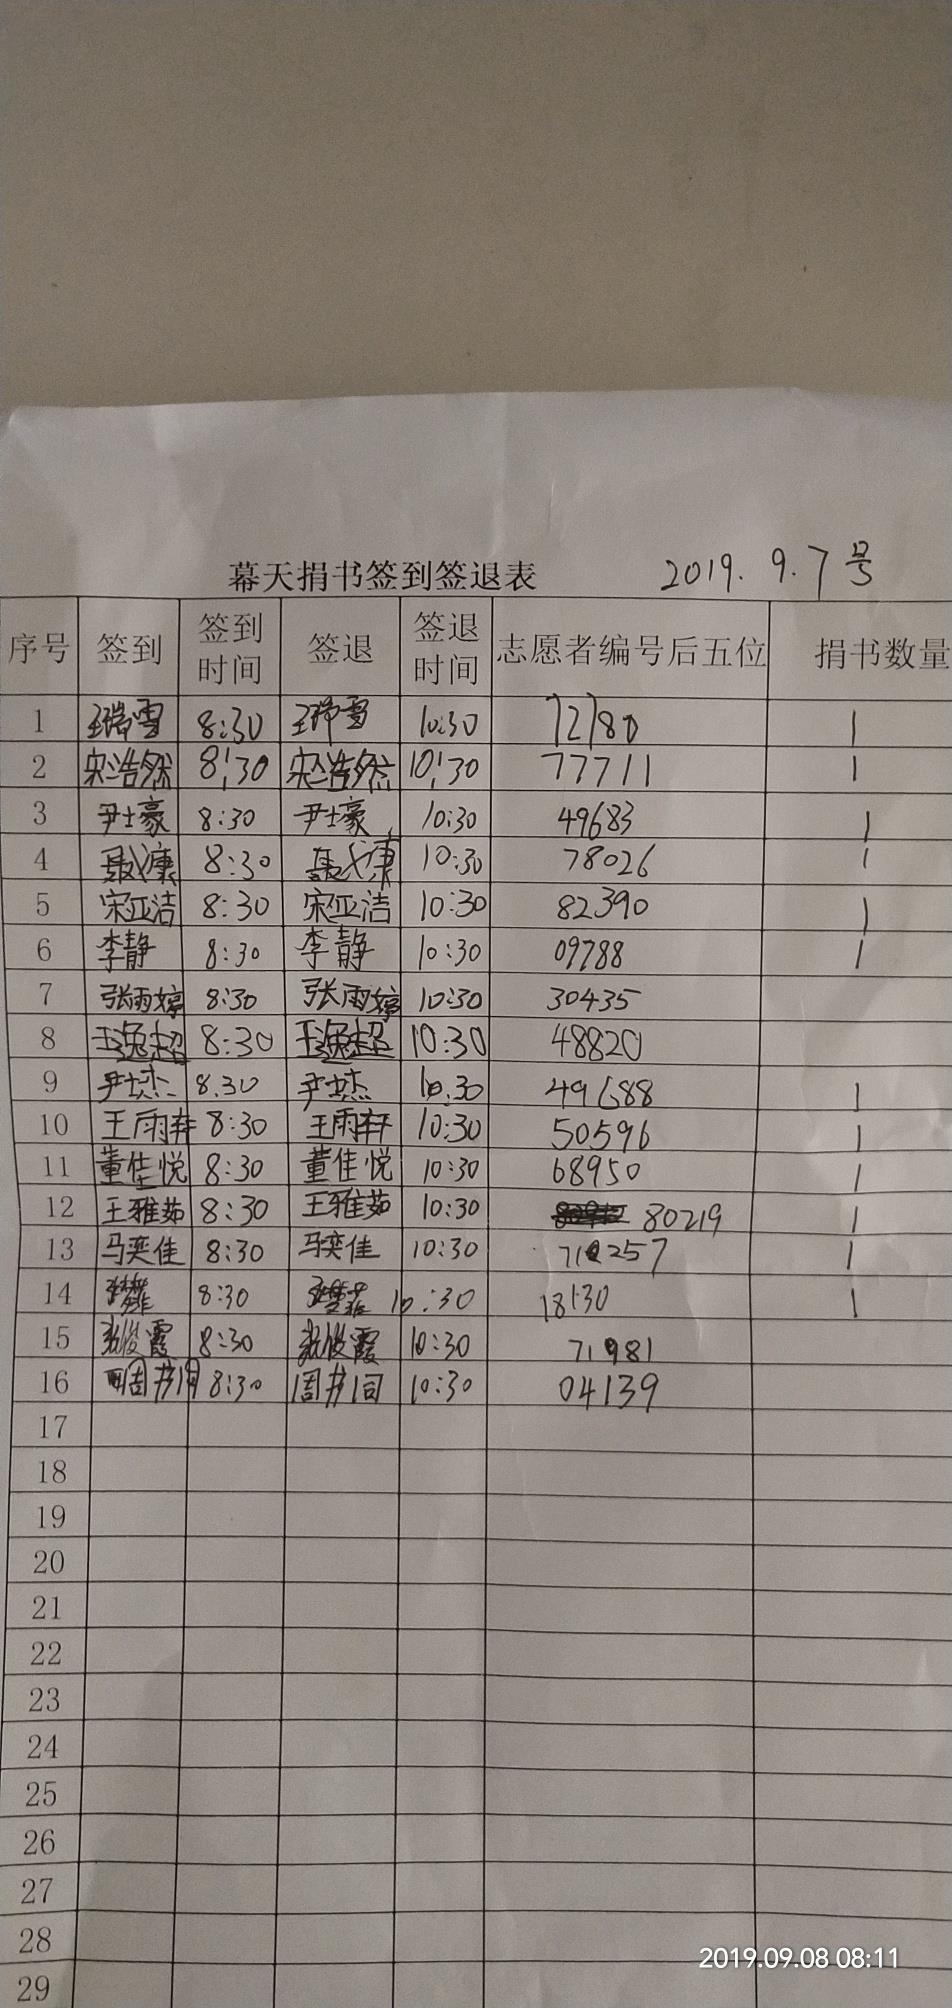 幕天捐书签到签退表 2019.9.7号
序号 签到 签到时间 签退 签退时间 志愿者编号后五位 捐书数量
1 王瑞雪 8:30 王瑞雪 10:30 72780 1
2 宋浩然 8:30 宋浩然 10:30 77711 1
3 尹士豪 8:30 尹士豪 10:30 49683 1
4 8:30 10:30 78026 1
5 宋亚洁 8:30 宋亚洁 10:30 82390 1
6 李静 8:30 李静 10:30 09788 1
7 张雨婷 8:30 张雨婷 10:30 30435
8 王逸超 8:30 王逸超 10:30 48820
9 尹士杰 8.30 尹士杰 10.30 49688 1
10 王雨轩 8:30 王雨轩 10:30 50596 1
11 董佳悦 8:30 董佳悦 10:30 68950 1
12 王雅茹 8:30 王雅茹 10:30 80219 1
13 马奕佳 8:30 马奕佳 10:30 71257 1
14 8:30 10:30 18130 1
15 张俊霞 8:30 张俊霞 10:30 71981
16 8:30 10:30 04139
17
18
19
20
21
22
23
24
25
26
27
28
29
2019.09.08 08:11